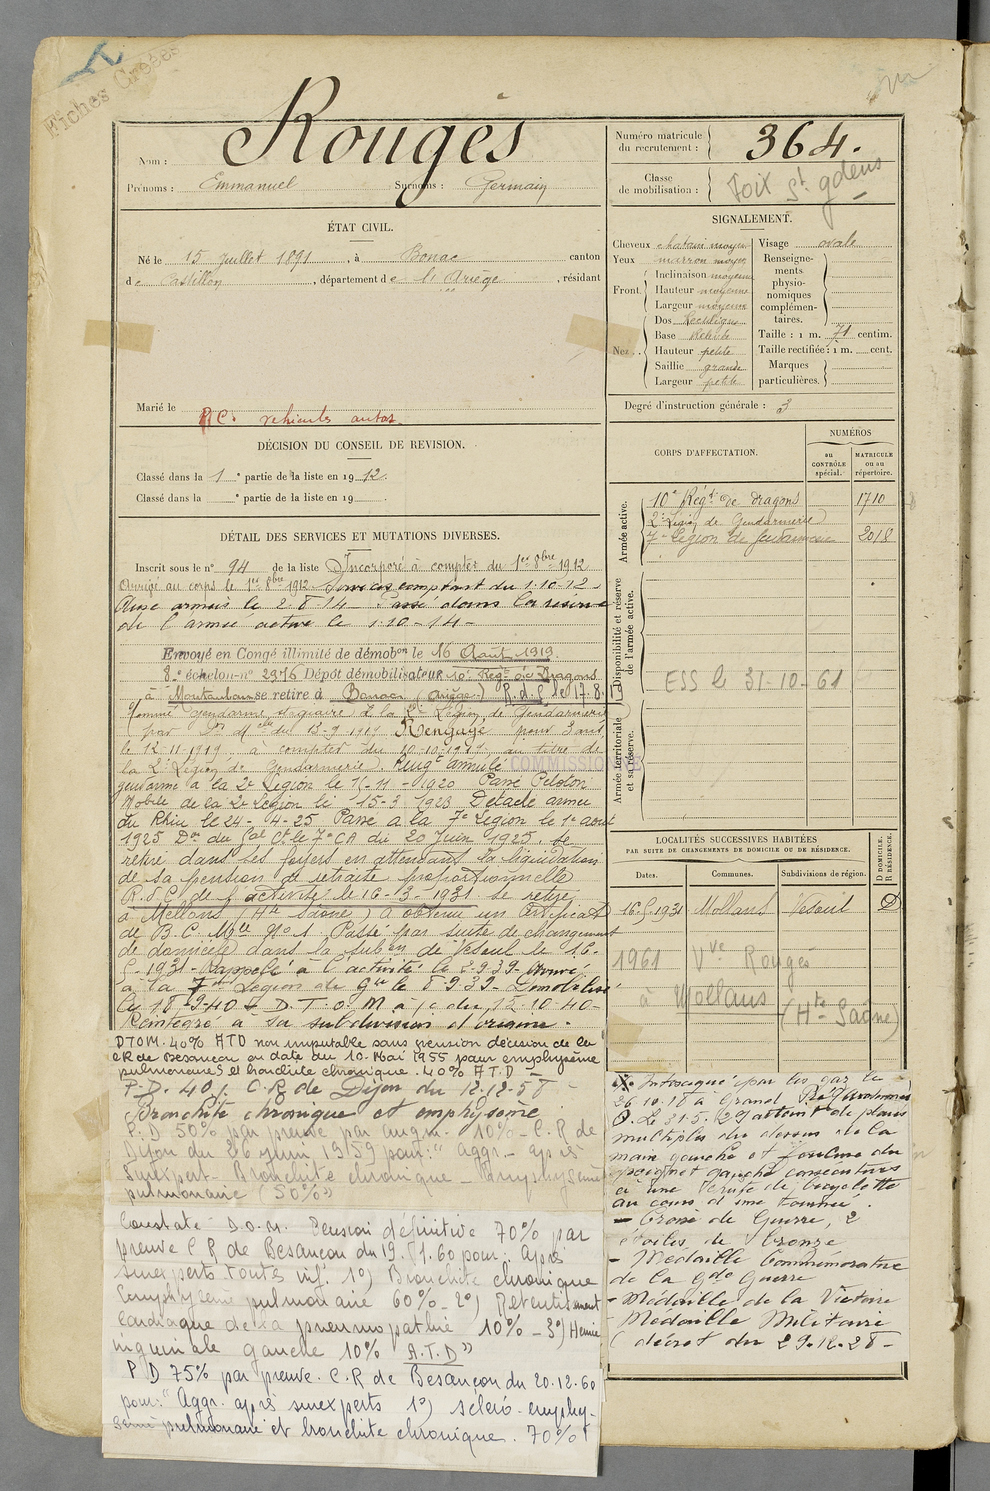 Fiches Croisées
Rougès
Nom :
Prénoms : Emmanuel Surnoms : Germain
ÉTAT CIVIL.
Né le 15 juillet 1891, à Bonac canton
de Castillon, département de l'Ariège, résidant
Marié le
P.C. vehicules autos
DÉCISION DU CONSEIL DE REVISION.
Classé dans la 1e partie de la liste en 1912.
Classé dans la e partie de la liste en 19 .
DÉTAIL DES SERVICES ET MUTATIONS DIVERSES.
Inscrit sous le n° 94 de la liste Incorporé à compter du 1er 8bre 1912
Arrivé au corps le 1er 8bre 1912 Services comptant du 1.10.12
Aux armées le 2.8.14 Passé dans la réserve
de l'armée active le 1.10.14
Envoyé en Congé illimité de démobon le 16 Août 1919
8e échelon n° 2976 Dépôt démobilisateur 10e Regt de Dragons
à Montauban se retire à Bonac (Ariège) R.d.C le 17.8.19
Nommé gendarme stagiaire à la 2e Légion de Gendarmerie
par Don Melle du 13-9-1919 Rengagé pour 3 ans
le 12-11-1919 à compter du 10-10-1919 au titre de
la 2e Légion de Gendarmerie. Rengt annulé COMMISSIONNÉ
gendarme à la 2e Légion le 15-11-1920 Passé Peloton
Mobile de la 2e Légion le 15-3-1923 Détaché armée
du Rhin le 24-4-25 Passé à la 7e Légion le 1er août
1925 Don du Gal Ct le 7e CA du 20 Juin 1925, se
retire dans ses foyers en attendant la liquidation
de sa pension de retraite proportionnelle
R.d.C. de l'activité le 16-3-1931 se retire
à Mollans (Hte Saône) A obtenu un certificat
de B.C. Mle N° 1 Passé par suite de changement
de domicile dans la subon de Vesoul le 16-
5-1931- Rappelé à l'activité le 2-9-39- Arrivé
à la 7e Légion de Gie le 8-9-39- Démobilisé
le 18-9-40 D.T.O.M à c. du 12-10-40-
Réintégré à sa subdivision d'origine.
DTOM. 40% ATD non imputable sans pension décision de la
CR de Besançon en date du 10. Mai 1955 pour emphysème
pulmonaire et bronchite chronique. 40% A.T.D
P.D. 40% C.R de Dijon du 12.12.58
Bronchite chronique et emphysème
P.D 50% par preuve par augm. 10% - C.R de
Dijon du 26 juin 1959 pour: " Aggr. après
surexpert- Bronchite chronique - Emphysème
pulmonaire (50%)"
Constate D.O.M. Pension définitive 70% par
preuve C R de Besançon du 19. 1. 60 pour: Après
surexperts toutes inf. 1°) Bronchite chronique
Emphysème pulmonaire 60% - 2°) Retentissement
Cardiaque de la pneumopathie 10% - 3°) Hernie
inguinale gauche 10% A.T.D"
P D 75% par preuve. C.R de Besançon du 20.12.60
pour: "Aggr. après surexperts 1°) scléro-emphy-
sème pulmonaire et bronchite chronique. 70%
Numéro matricule
du recrutement : 364.
Classe
de mobilisation : Foix St gdens
SIGNALEMENT.
Cheveux chatain moyen
Yeux marron moyen
Front. Inclinaison moyenne
Hauteur moyenne
Largeur moyenne
Nez.. Dos Rectiligne
Base Relevée
Hauteur petite
Saillie grande
Largeur petite
Visage ovale
Renseigne-
ments
physio-
nomiques
complémen-
taires.
Taille : 1 m. 71 centim.
Taille rectifiée : 1 m. cent.
Marques
particulières.
Degré d'instruction générale : 3
CORPS D'AFFECTATION.
NUMÉROS
au CONTRÔLE spécial.
MATRICULE ou au répertoire.
Armée active.
10e Régt de dragons 1710
2e Légion de Gendarmerie
7e Légion de Gendarmerie 2018
Disponibilité et réserve de l'armée active.
ESS le 31-10-61
Armée territoriale et sa réserve.
LOCALITÉS SUCCESSIVES HABITÉES
PAR SUITE DE CHANGEMENTS DE DOMICILE OU DE RÉSIDENCE.
Dates. Communes. Subdivisions de région. D DOMICILE. R RÉSIDENCE.
16.5.1931 Mollans Vesoul D
1961 Vve Rougès
à Mollans (Hte Saône)
Intoxiqué par les gaz le
26.10.18 à Grand
Le 31.5.29 atteint de plaies
multiples du dessus de la
main gauche et foulure du
poignet gauche consécutives
à une chute de bicyclette
au cours d'une tournée.
- Croix de Guerre, 2
étoiles de bronze
- Médaille Commémorative
de la Gde Guerre
- Médaille de la Victoire
- Médaille Militaire
(décret du 29.12.28-